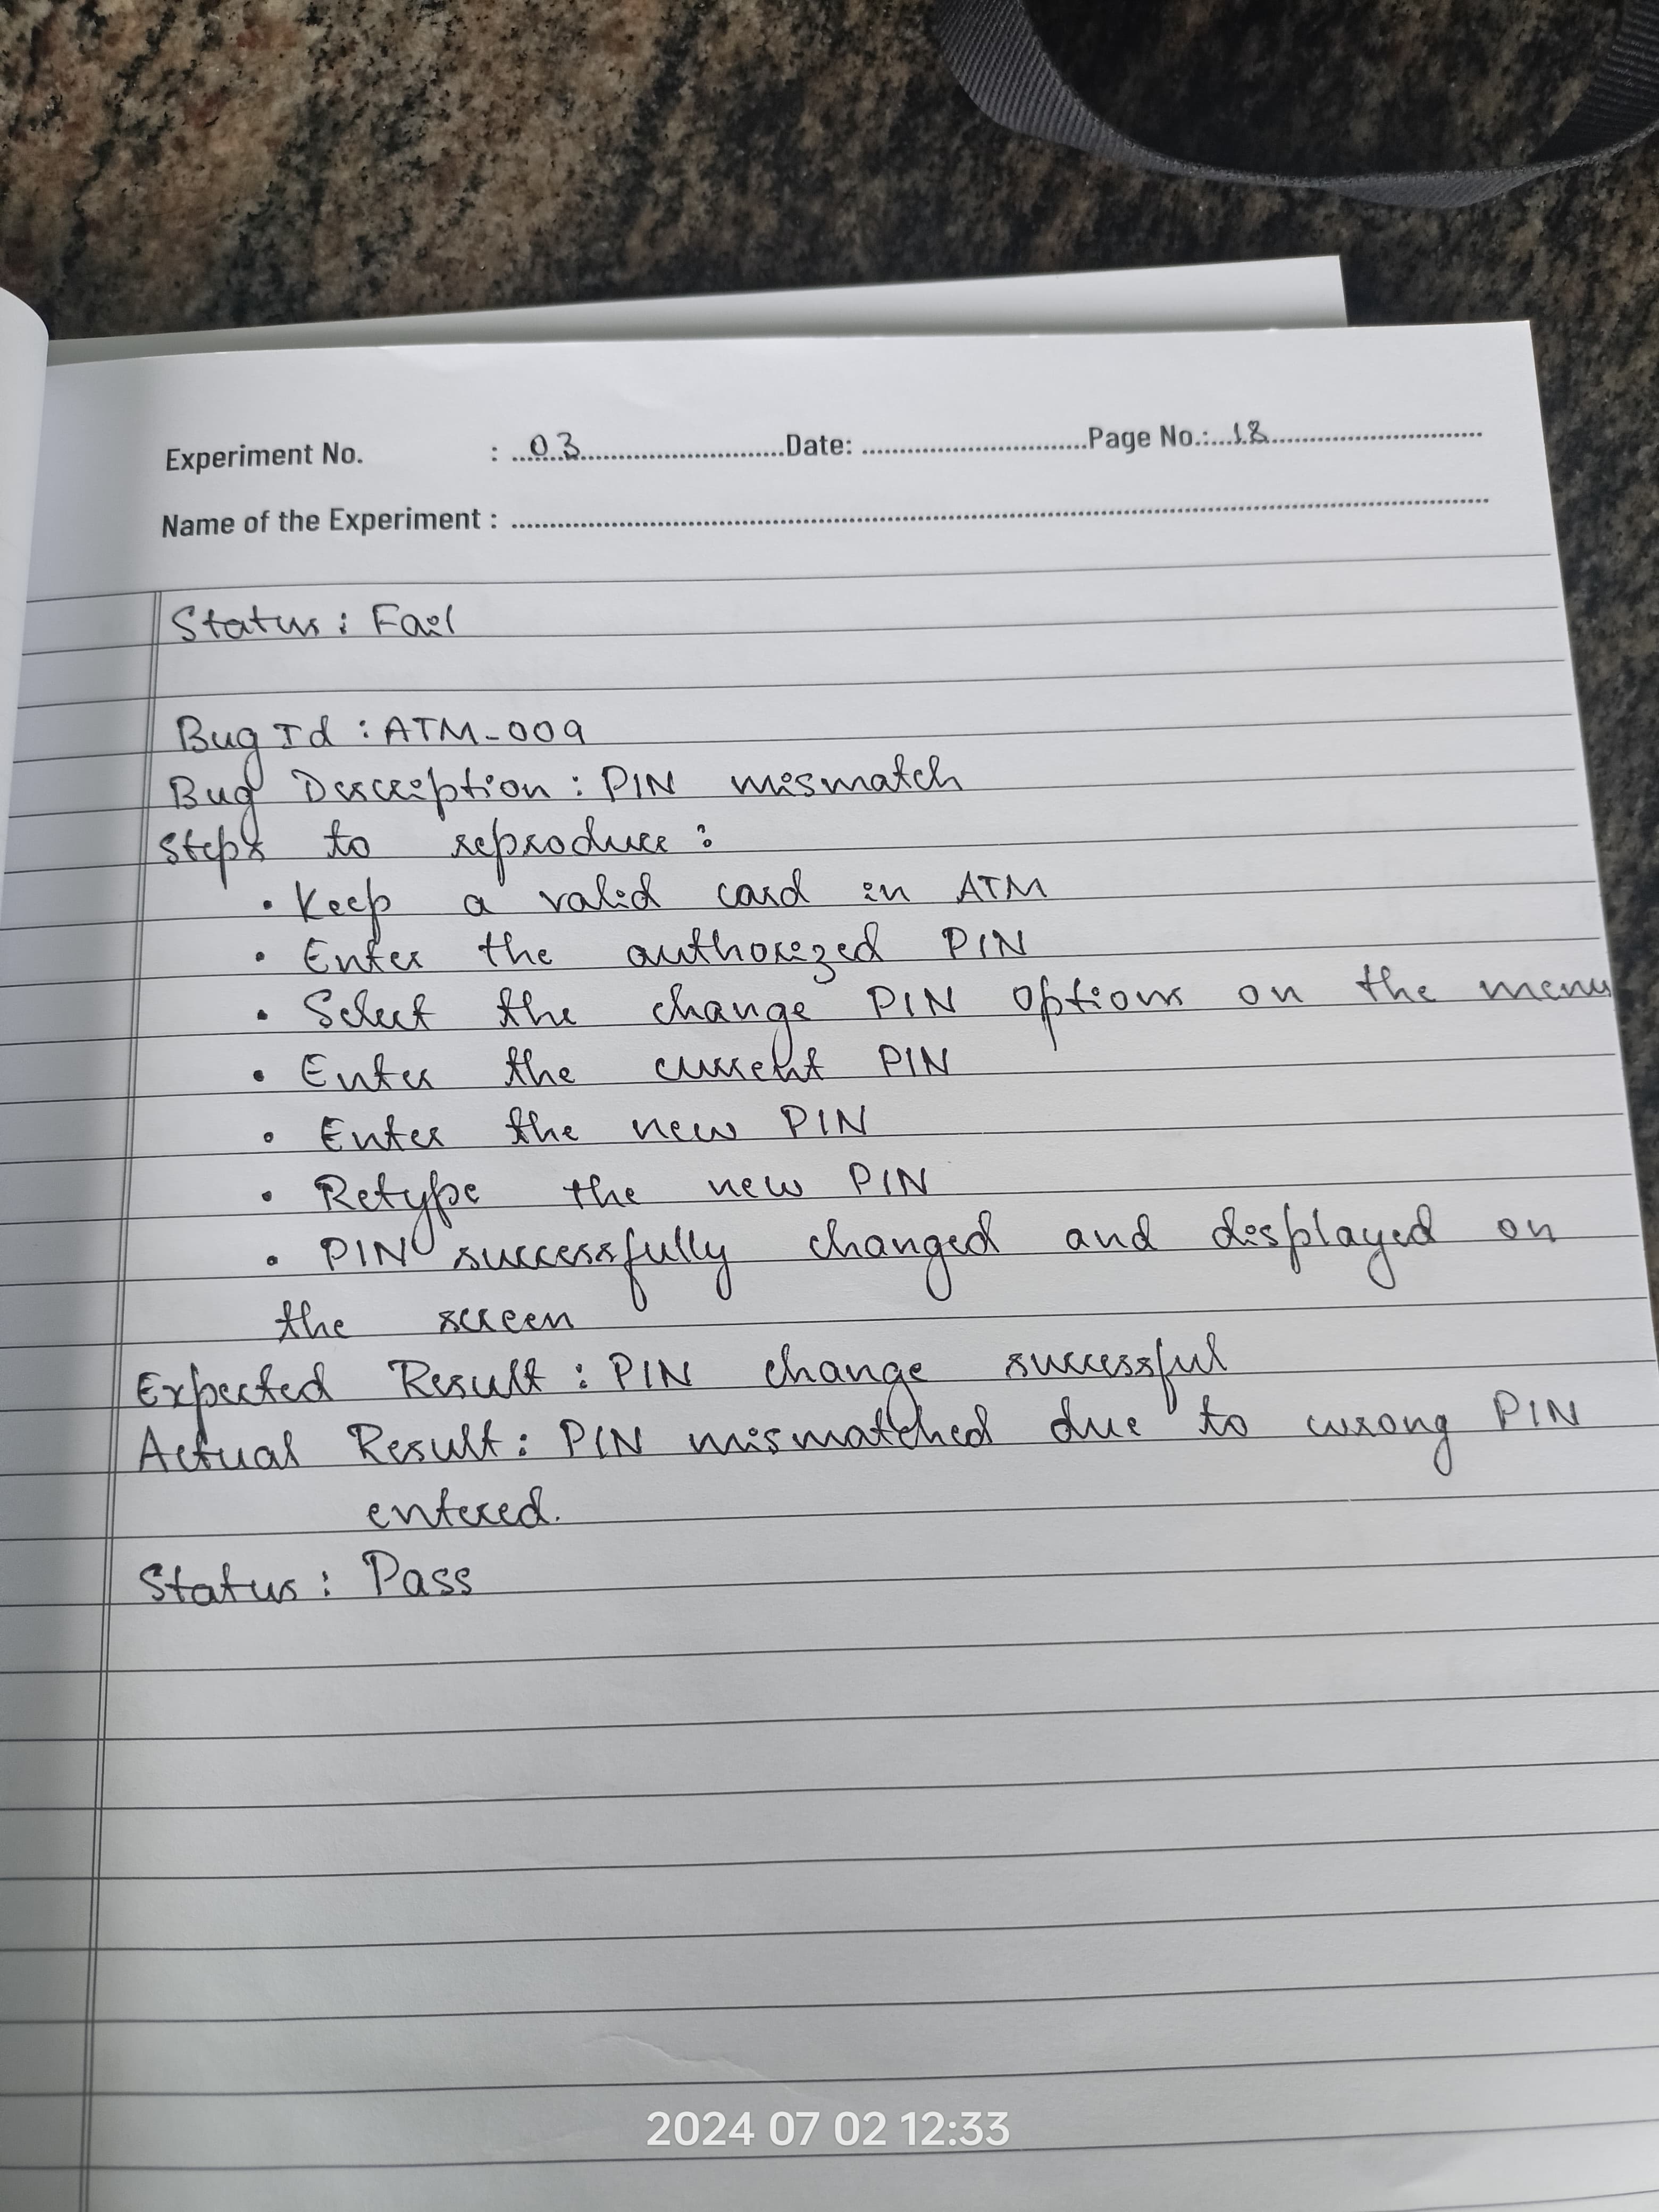 Experiment No. : 03 Date: Page No.: 18
Name of the Experiment :
Status : Fail
Bug Id : ATM-009
Bug Description : PIN mismatch
Steps to reproduce :
• Keep a valid card in ATM
• Enter the authorized PIN
• Select the change PIN options on the menu
• Enter the current PIN
• Enter the new PIN
• Retype the new PIN
• PIN successfully changed and displayed on
the screen
Expected Result : PIN change successful
Actual Result : PIN mismatched due to wrong PIN
entered.
Status : Pass
2024 07 02 12:33